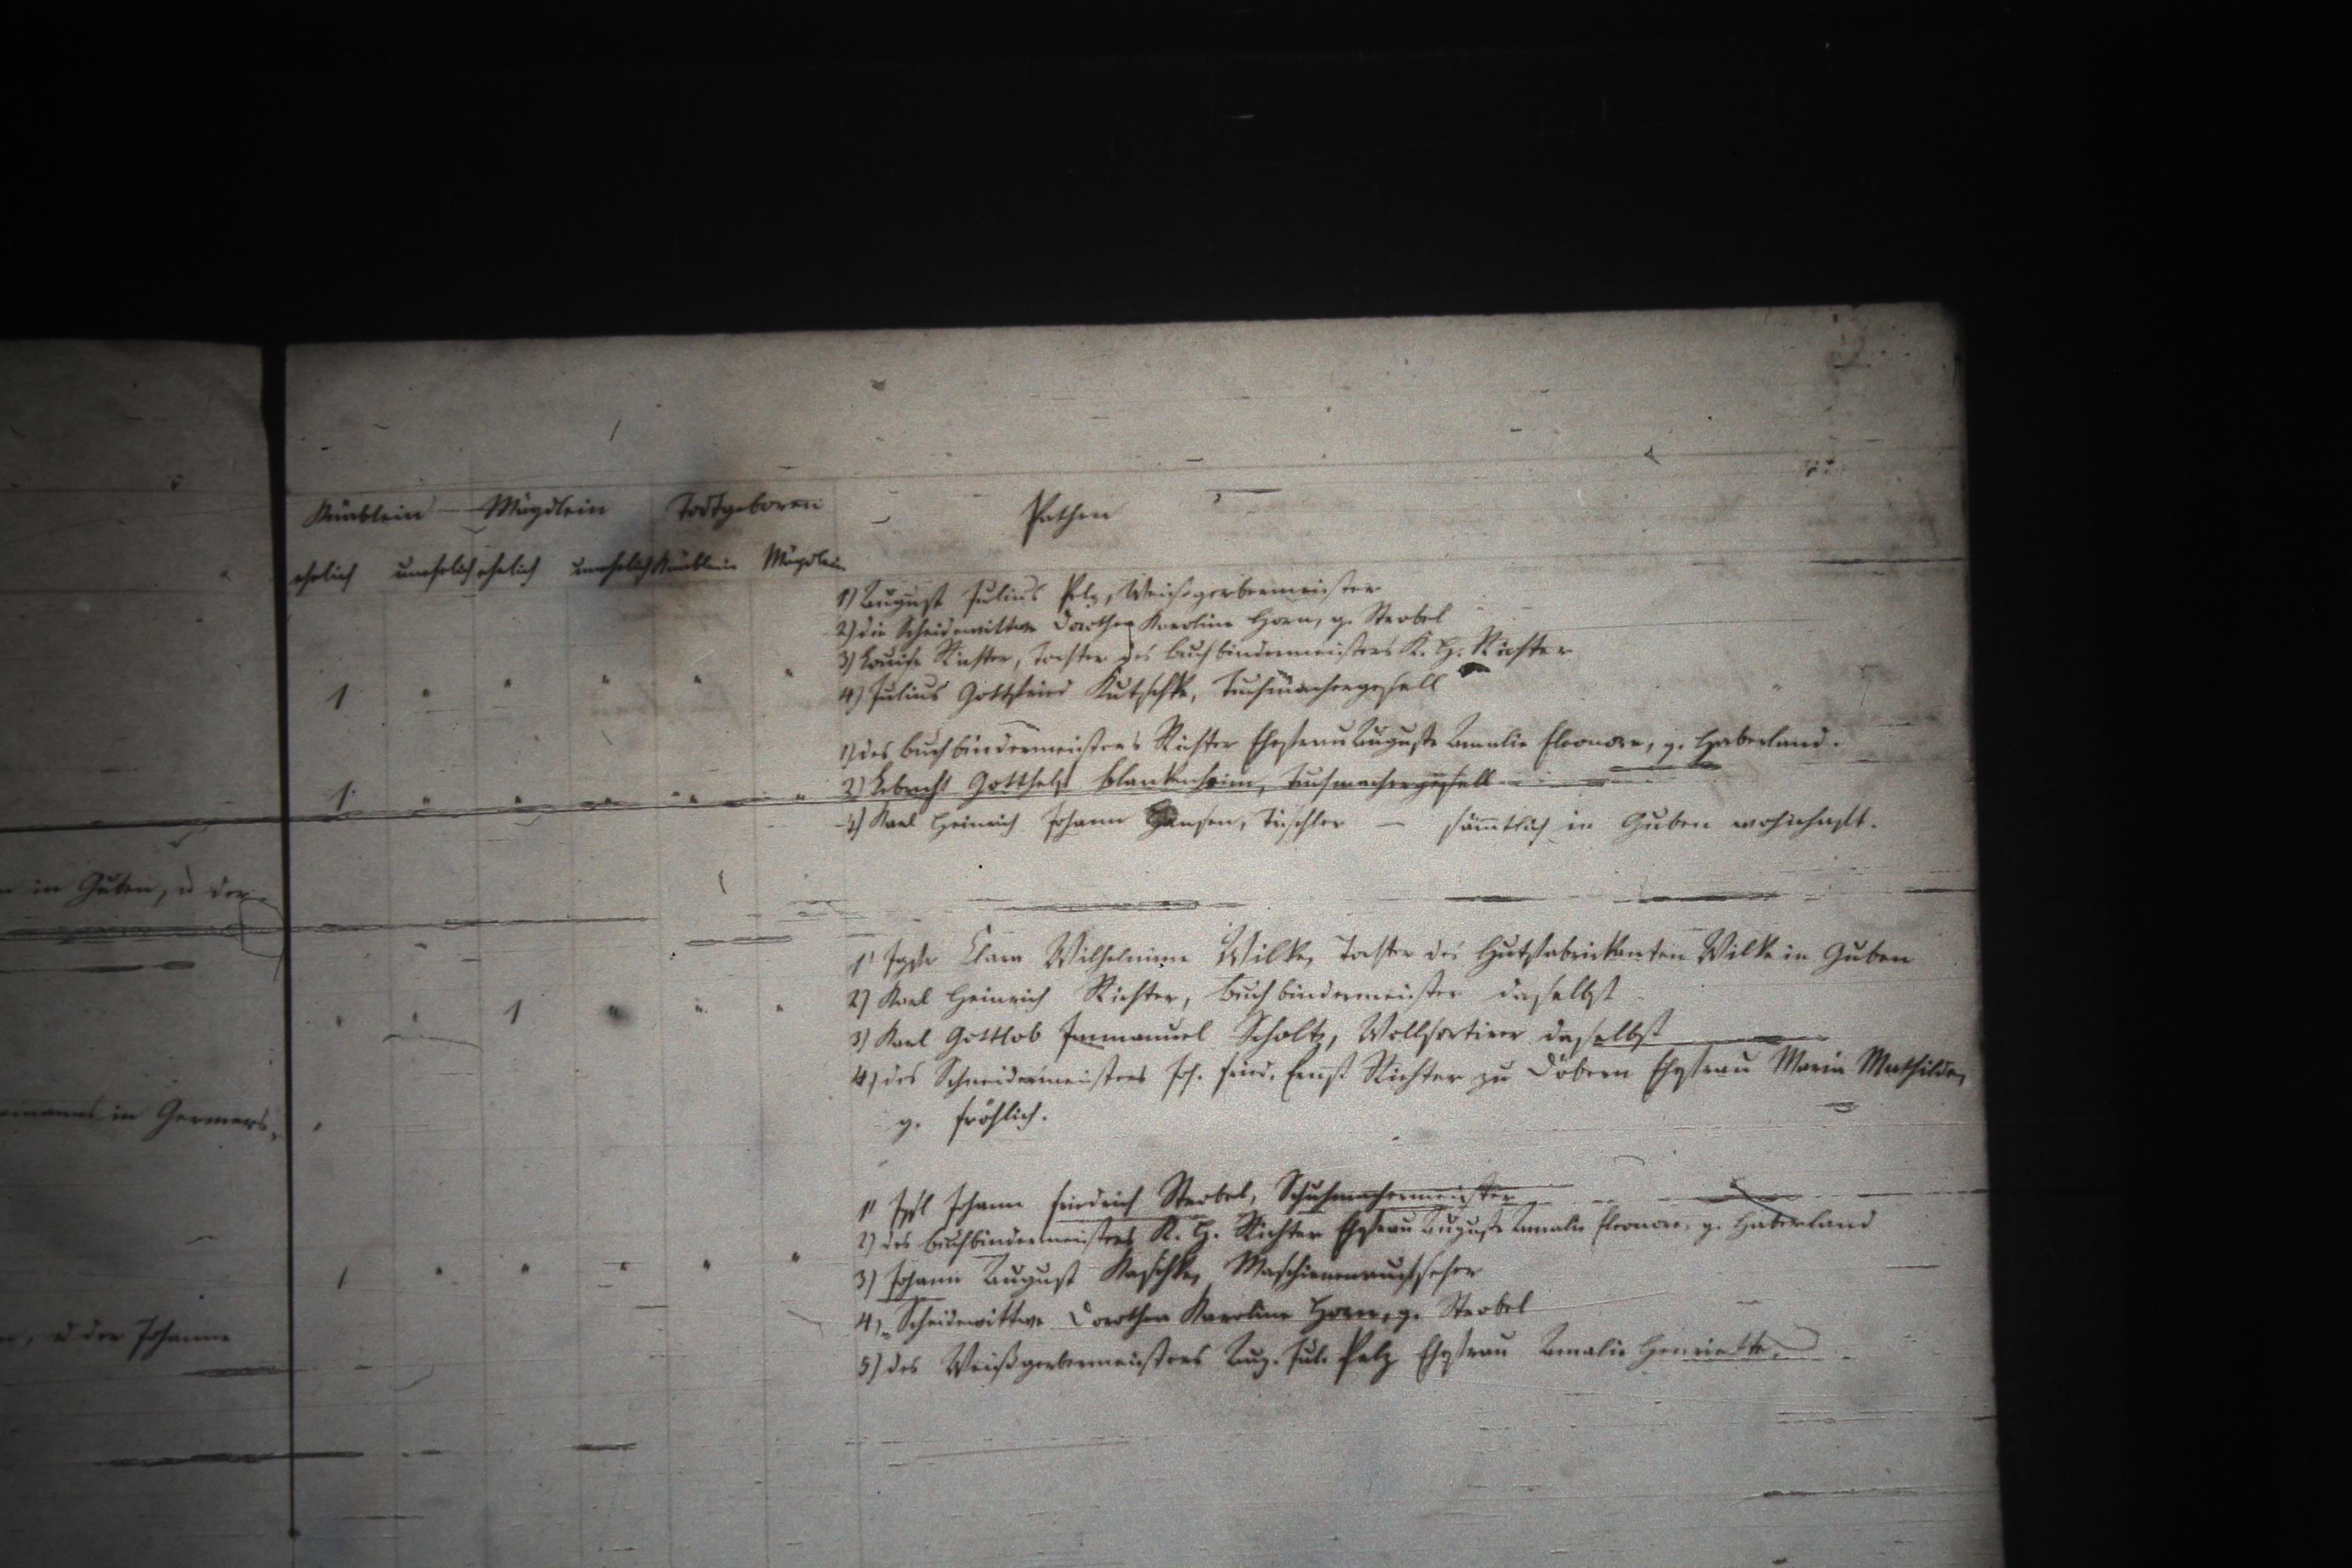 Knäblein Mägdlein Todtgeboren Pathen
ehelich unehelich ehelich unehelich Knäblein Mägdlein
1) August Julius Pelz, Weißgerbermeister
2) die Scheidewittwe Dorothea Karoline Horn, g. Strobel
3) Louise Richter, Tochter des Buchbindermeisters K. H. Richter
1 " " " " "
4) Julius Gottfried Kutschke, Tuchmachergesell
1) des Buchbindermeisters Richter Ehefrau Auguste Amalie Eleonore, g. Haberland.
1. " " " " "
2) Lebrecht Gotthelf Blankenheim, Tuchmachergesell
3) Karl Heinrich Johann Hansen, Tischler — sämmtlich in Guben wohnhaft.
in Guben, u der
1) Clara Wilhelmine Wilke, Tochter des Hutfabrikanten Wilke in Guben
2) Karl Heinrich Richter, Buchbindermeister daselbst
" " 1 " " "
3) Karl Gottlob Immanuel Scholtz, Wollsortirer daselbst
4) des Schneidermeisters Joh. Fried. Ernst Richter zu Döbern Ehefrau Maria Mathilde,
g. Fröhlich.
in Germers
1) Johann Friedrich Strobel, Schuhmachermeister
2) des Buchbindermeisters K. H. Richter Ehefrau Auguste Amalie Eleonore, g. Haberland
1 " " " " "
3) Johann August Kaschke,
4) Scheidewittwe Dorothea Karoline Horn, g. Strobel
u der Johanne
5) des Weißgerbermeisters Aug. Jul. Pelz Ehefrau Amalie Henriette.